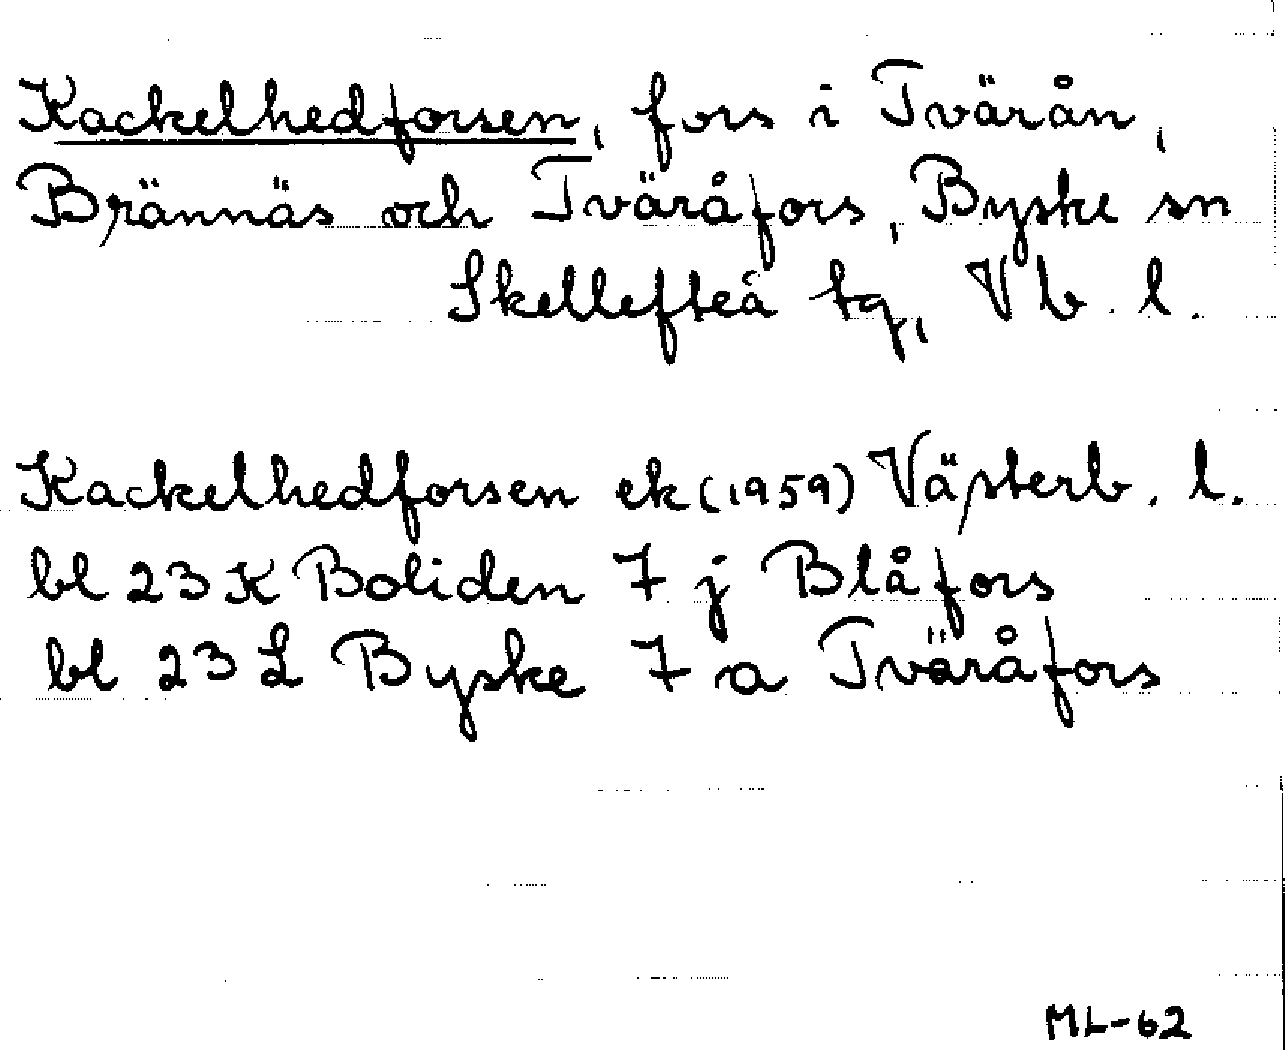 Kackelhedforsen, fors i Tvärån,
Brännäs och Tväråfors, Byske sn
Skellefteå tg, Vb. l.
Kackelhedforsen ek (1959) Västerb. l.
bl 23 K Boliden 7 j Blåfors
bl 23 L Byske 7 a Tväråfors
ML-62